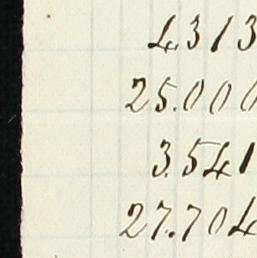 4313
25.000
3.541
27.704